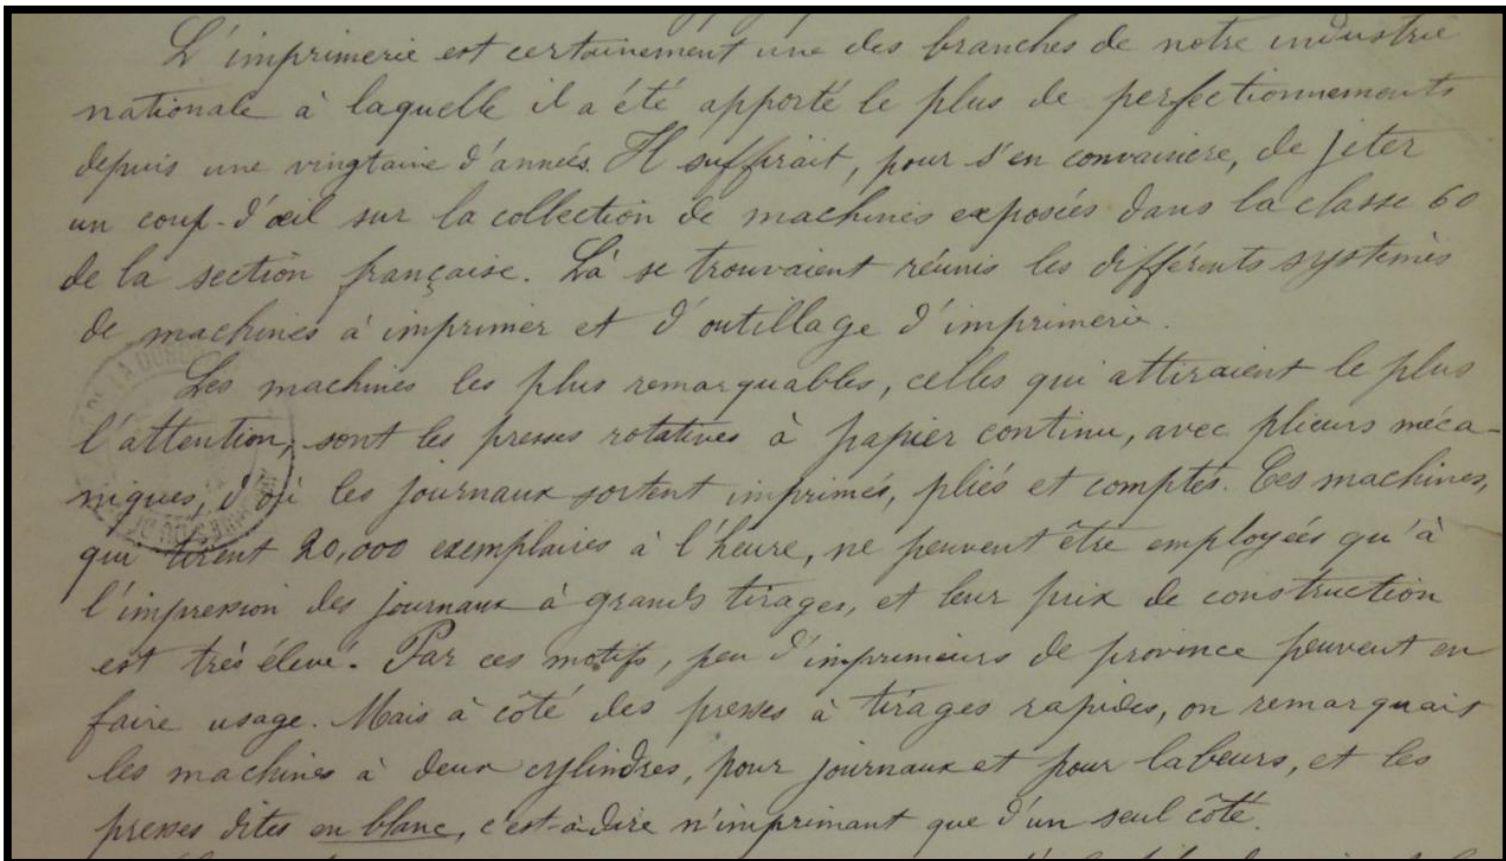 L'imprimerie est certainement une des branches de notre industrie
nationale à laquelle il a été apporté le plus de perfectionnements
depuis une vingtaine d'années. Il suffirait, pour s'en convaincre, de jeter
un coup-d'œil sur la collection de machines exposées dans la classe 60
de la section française. Là se trouvaient réunis les différents systèmes
de machines à imprimer et d'outillage d'imprimerie.
Les machines les plus remarquables, celles qui attiraient le plus
l'attention, sont les presses rotatives à papier continu, avec plieurs méca-
niques, d'où les journaux sortent imprimés, pliés et comptés. Ces machines,
qui tirent 20,000 exemplaires à l'heure, ne peuvent être employées qu'à
l'impression des journaux à grands tirages, et leur prix de construction
est très élevé. Par ces motifs, peu d'imprimeurs de province peuvent en
faire usage. Mais à côté des presses à tirages rapides, on remarquait
les machines à deux cylindres, pour journaux et pour labeurs, et les
presses dites en blanc, c'est-à-dire n'imprimant que d'un seul côté.